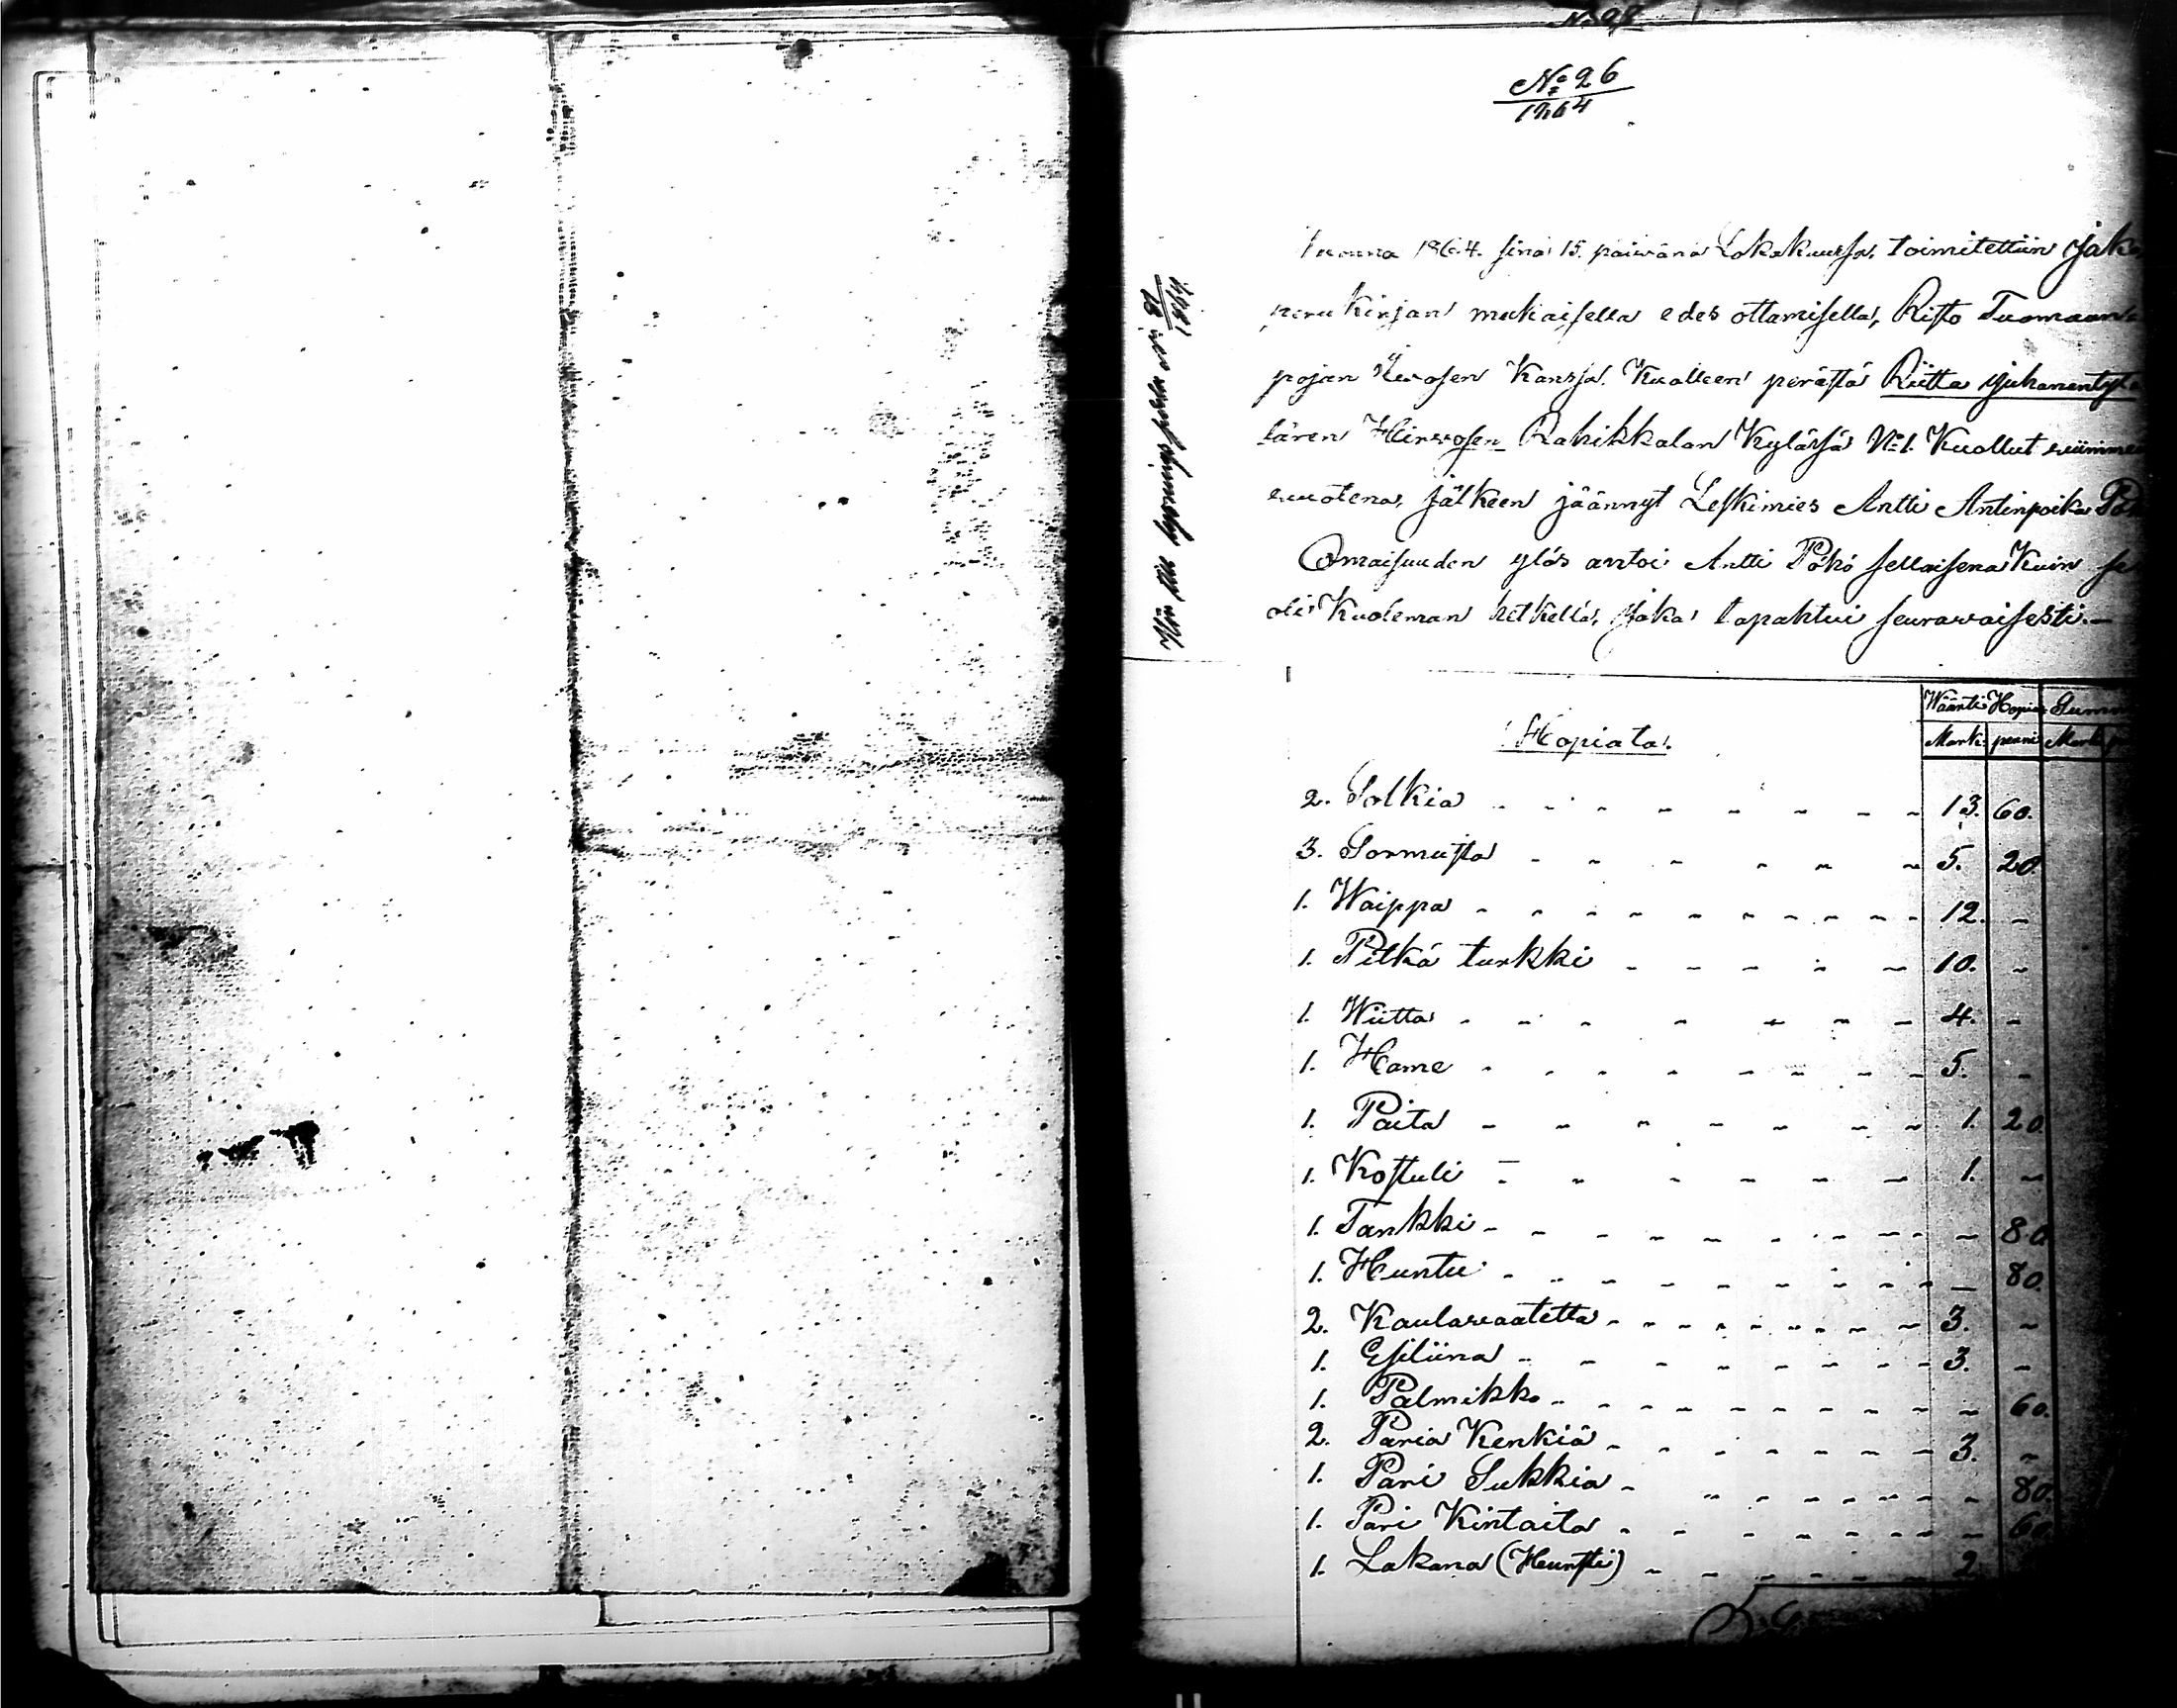 No 26
1864
Vuonna 1864. sinä 15. päiwänä Lokakuussa, toimitettiin Jako
perukirjan mukaisella edes ottamisella, Risto Tuomaan
pojan Kanssa. Kuolleen perästä Riitta Juhanantyt
tären Hirwosen Rahikkalan Kylässä No 1. Kuollut wiimme
wuotena, jälkeen jäännyt Leskimies Antti Antinpoika
Omaisuuden ylös antoi Antti Pökö sellaisena Kuin se
oli Kuoleman hetkellä, Joka tapahtui seurawaisesti.—
Hopiata. Wääntti Hopia Summa
Mark. penni Mark
2. Solkia 13. 60.
3. Sormusta 5. 20
1. Waippa 12. -
1. Pitkä turkki 10. -
1. Wiitta 4. -
1. Hame 5. -
1. Paita 1. 20.
1. Kostuli 1. -
1. Tankki - 80
1. Huntu - 80.
2. Kaulawaatetta 3. -
1. Esiliina 3. -
1. Palmikko - 60.
2. Paria Kenkiä 3. -
1. Pari Sukkia - 80.
1. Pari Kintaita - 60
1. Lakana (Hursti) 2